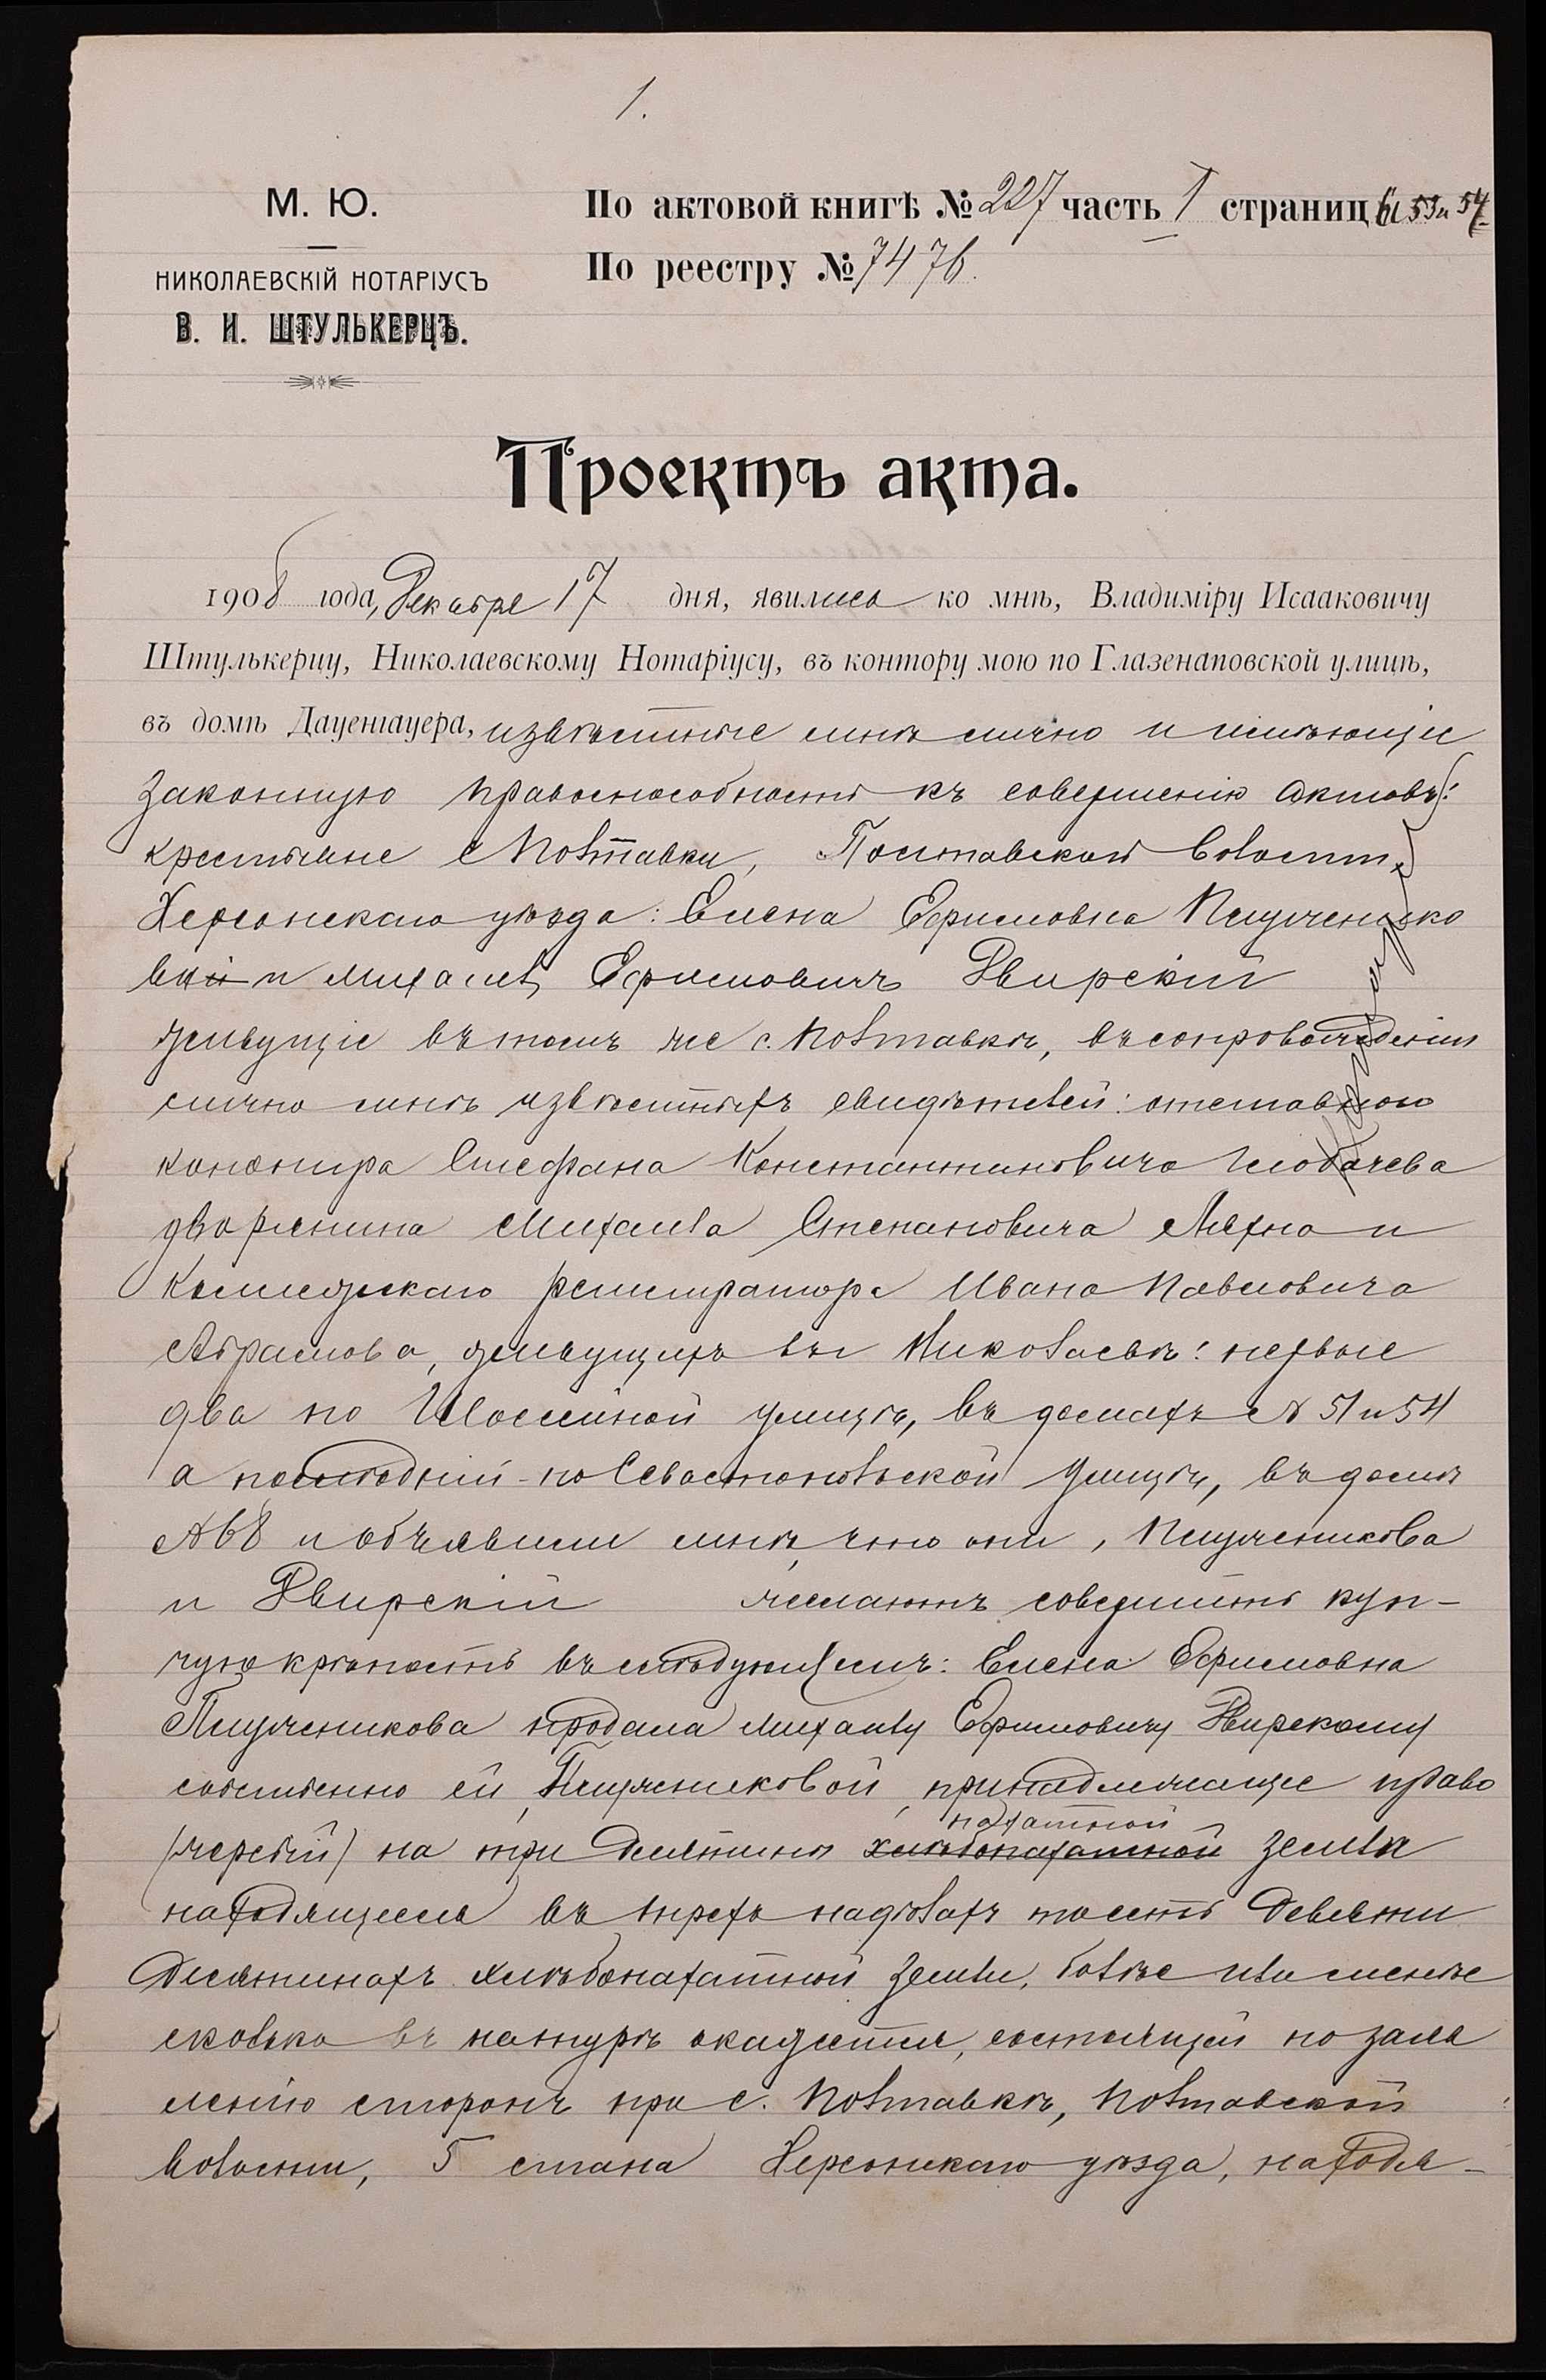 1.
М. Ю.
НИКОЛАЕВСКІЙ НОТАРІУСЪ
В. И. ШТУЛЬКЕРЦЪ.
По актовой книгѣ № 227 часть 1 страниц ы 53 и 54
По реестру № 7476.
Проектъ акта.
1908 года, Декабря 17 дня, явились ко мнѣ, Владиміру Исааковичу
Штулькерцу, Николаевскому Нотаріусу, въ контору мою по Глазенаповской улицѣ,
въ домѣ Дауенгауера, извѣстные мнѣ лично и имѣющіе
законную правоспособность къ совершенію актовъ:
крестьяне с Полтавки, Полтавской волости
Херсонскаго уѣзда: Елена Ефимовна Пшученико
ва и Михаилъ Ефимовичъ Двирскій
живущіе въ томъ же с. Полтавкѣ, въ сопровожденіи
лично мнѣ извѣстныхъ свидѣтелей: отставного
канонира Стефана Константиновича
дворянина Михаила Степановича Лехно и
Коллежскаго регистратора Ивана Павловича
Абрамова, живущихъ въ г Николаевѣ: первые
два по улицѣ, въ домахъ № 51 и 54
а послѣдній - по Севастопольской улицѣ, въ домѣ
№ 68 и объявили мнѣ, что они,
и Двирскій желаютъ совершить куп-
чую крѣпость въ слѣдующемъ: Елена Ефимовна
продала Михаилу Ефимовичу Двирскому
собственно ей, принадлежащее право
(жеребій) на три десятины хлѣбопахатной пахатной земли
находящееся въ трехъ надѣлахъ шести девяти
десятинахъ хлѣбопахатной земли, болѣе или менѣе
сколько въ натурѣ окажется, состоящей по заяв
ленію сторонъ при с. Полтавкѣ, Полтавской
волости, 5 стана Херсонскаго уѣзда, находя-